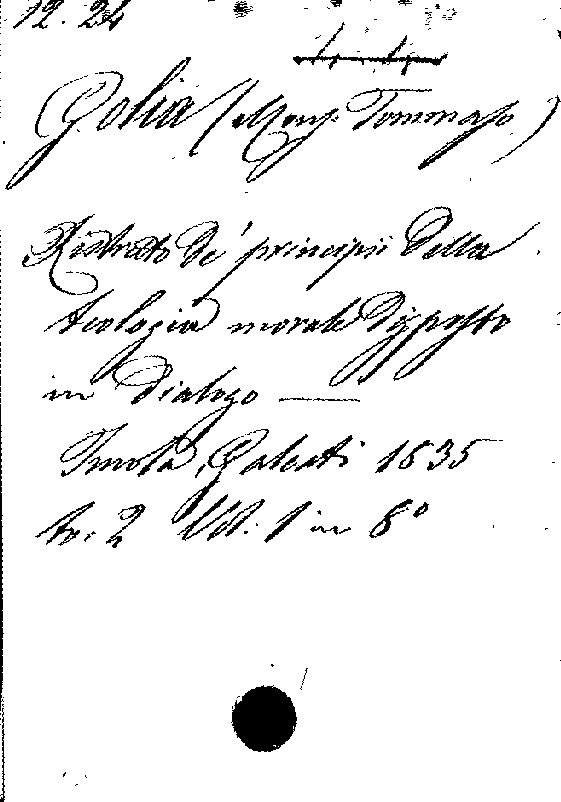 12. 24
Golia (Mons. Tommaso)
Ristretto de' principii della
teologia morale disposto
in dialogo —
Imola, Galeati 1835
to. 2 Vol. 1 in 8º